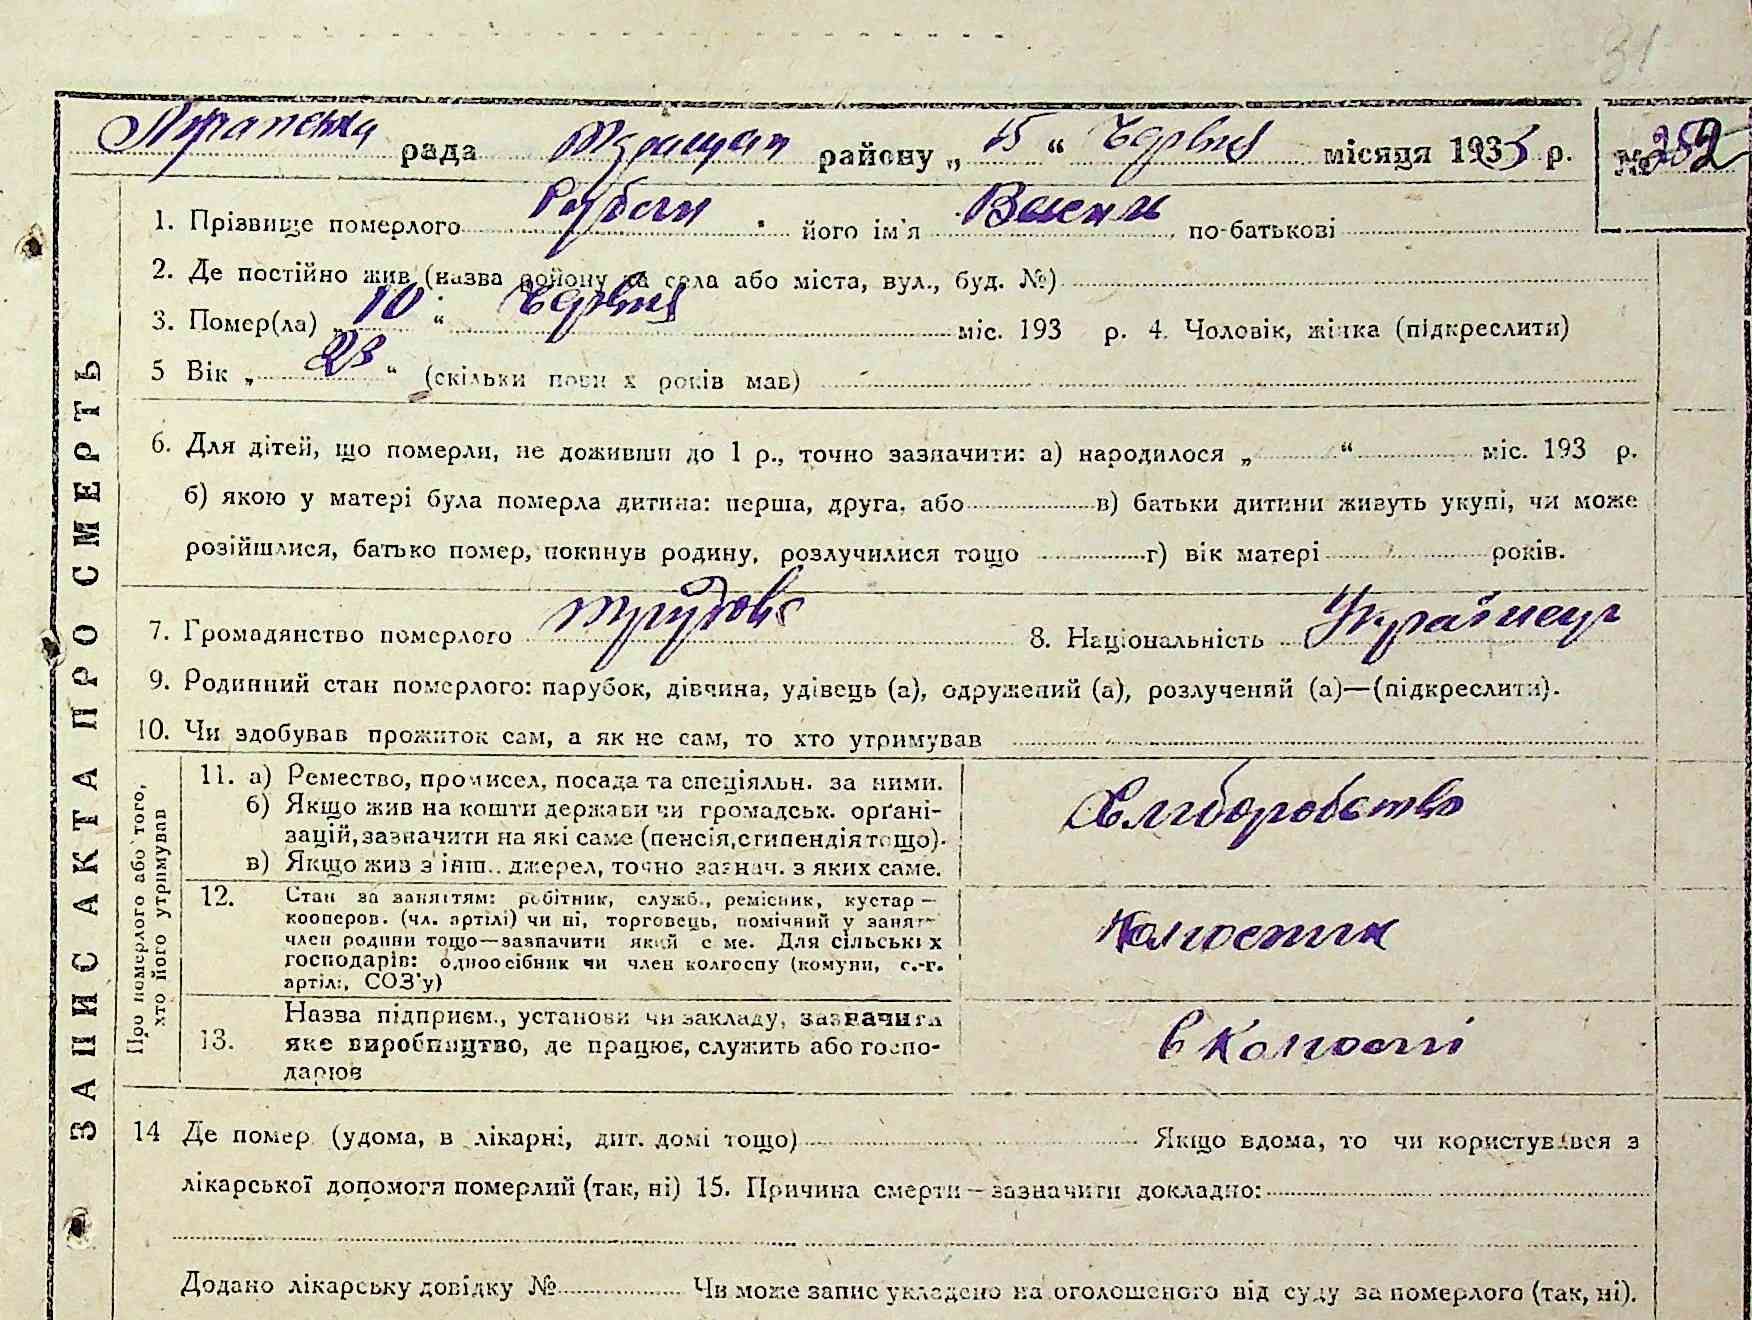 31
рада район‎у „ 15 “ Червня місяця 1933 р. № 252
1. Прізвище померлого його ім'я по-батькові
2. Де постійно жив (назва району та села або міста, вул., буд. №)
3. Помер(ла) „ 10 “ Червня міс. 193 р. 4. Чоловік, жінка (підкреслити)
5 Вік „ 23 “ (скільки повних років мав)
6. Для дітей, що померли, не доживши до 1 р., точно зазначити: а) народилося „ “ міс. 193 р.
б) якою у матері була померла дитина: перша, друга, або в) батьки дитини живуть укупі, чи може
розійшлися, батько помер, покинув родину, розлучилися тощо г) вік матері років.
7. Громадянство померлого трудове 8. Національність Українець
9. Родинний стан померлого: парубок, дівчина, удівець (а), одружений (а), розлучений (а)—(підкреслити).
10. Чи здобував прожиток сам, а як не сам, то хто утримував
ЗАПИС АКТА ПРО СМЕРТЬ
Про померлого або того,
хто його утримував
11. а) Ремество, промисел, посада та спеціяльн. за ними.
б) Якщо жив на кошти держави чи громадськ. орґані-
зацій, зазначити на які саме (пенсія, стипендія тощо).
в) Якщо жив з інш.. джерел, точно зазнач. з яких саме.
Хліборобство
12. Стан за заняттям: робітник, служб., ремісник, кустар—
кооперов. (чл. артілі) чи ні, торговець, помічний у занят-
член родини тощо—зазначити який саме. Для сільських
господарів: одноосібник чи член колгоспу (комуни, с.-г.
артілі, СОЗ'у)
Колгоспник
13. Назва підприєм., установи чи закладу, зазначити
яке виробництво, де працює, служить або госпо-
дарює
в Колгоспі
14 Де помер (удома, в лікарні, дит. домі тощо) Якщо вдома, то чи користувався з
лікарської допомоги померлий (так, ні) 15. Причина смерти—зазначити докладно:
Додано лікарську довідку № Чи може запис укладено на оголошеного від суду за померлого (так, ні).